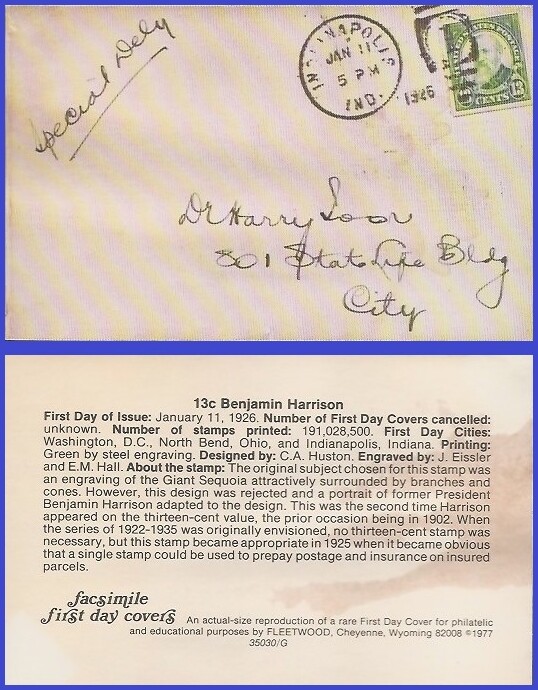 Special Dely
INDIANAPOLIS
JAN 11
5 PM
IND.
1926
CENTS 13
Dr Harry
801 State Life Bldg
City
13c Benjamin Harrison
First Day of Issue: January 11, 1926. Number of First Day Covers cancelled:
unknown. Number of stamps printed: 191,028,500. First Day Cities:
Washington, D.C., North Bend, Ohio, and Indianapolis, Indiana. Printing:
Green by steel engraving. Designed by: C.A. Huston. Engraved by: J. Eissler
and E.M. Hall. About the stamp: The original subject chosen for this stamp was
an engraving of the Giant Sequoia attractively surrounded by branches and
cones. However, this design was rejected and a portrait of former President
Benjamin Harrison adapted to the design. This was the second time Harrison
appeared on the thirteen-cent value, the prior occasion being in 1902. When
the series of 1922-1935 was originally envisioned, no thirteen-cent stamp was
necessary, but this stamp became appropriate in 1925 when it became obvious
that a single stamp could be used to prepay postage and insurance on insured
parcels.
facsimile
first day covers An actual-size reproduction of a rare First Day Cover for philatelic
and educational purposes by FLEETWOOD, Cheyenne, Wyoming 82008 ©1977
35030/G